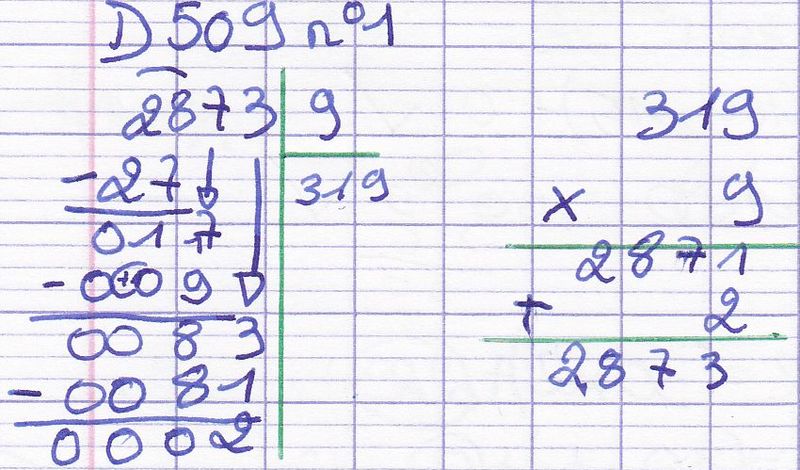 D509 n°1
2873 9
- 27 319
017
- 009
0083
- 0081
0002
319
x 9
2871
+ 2
2873